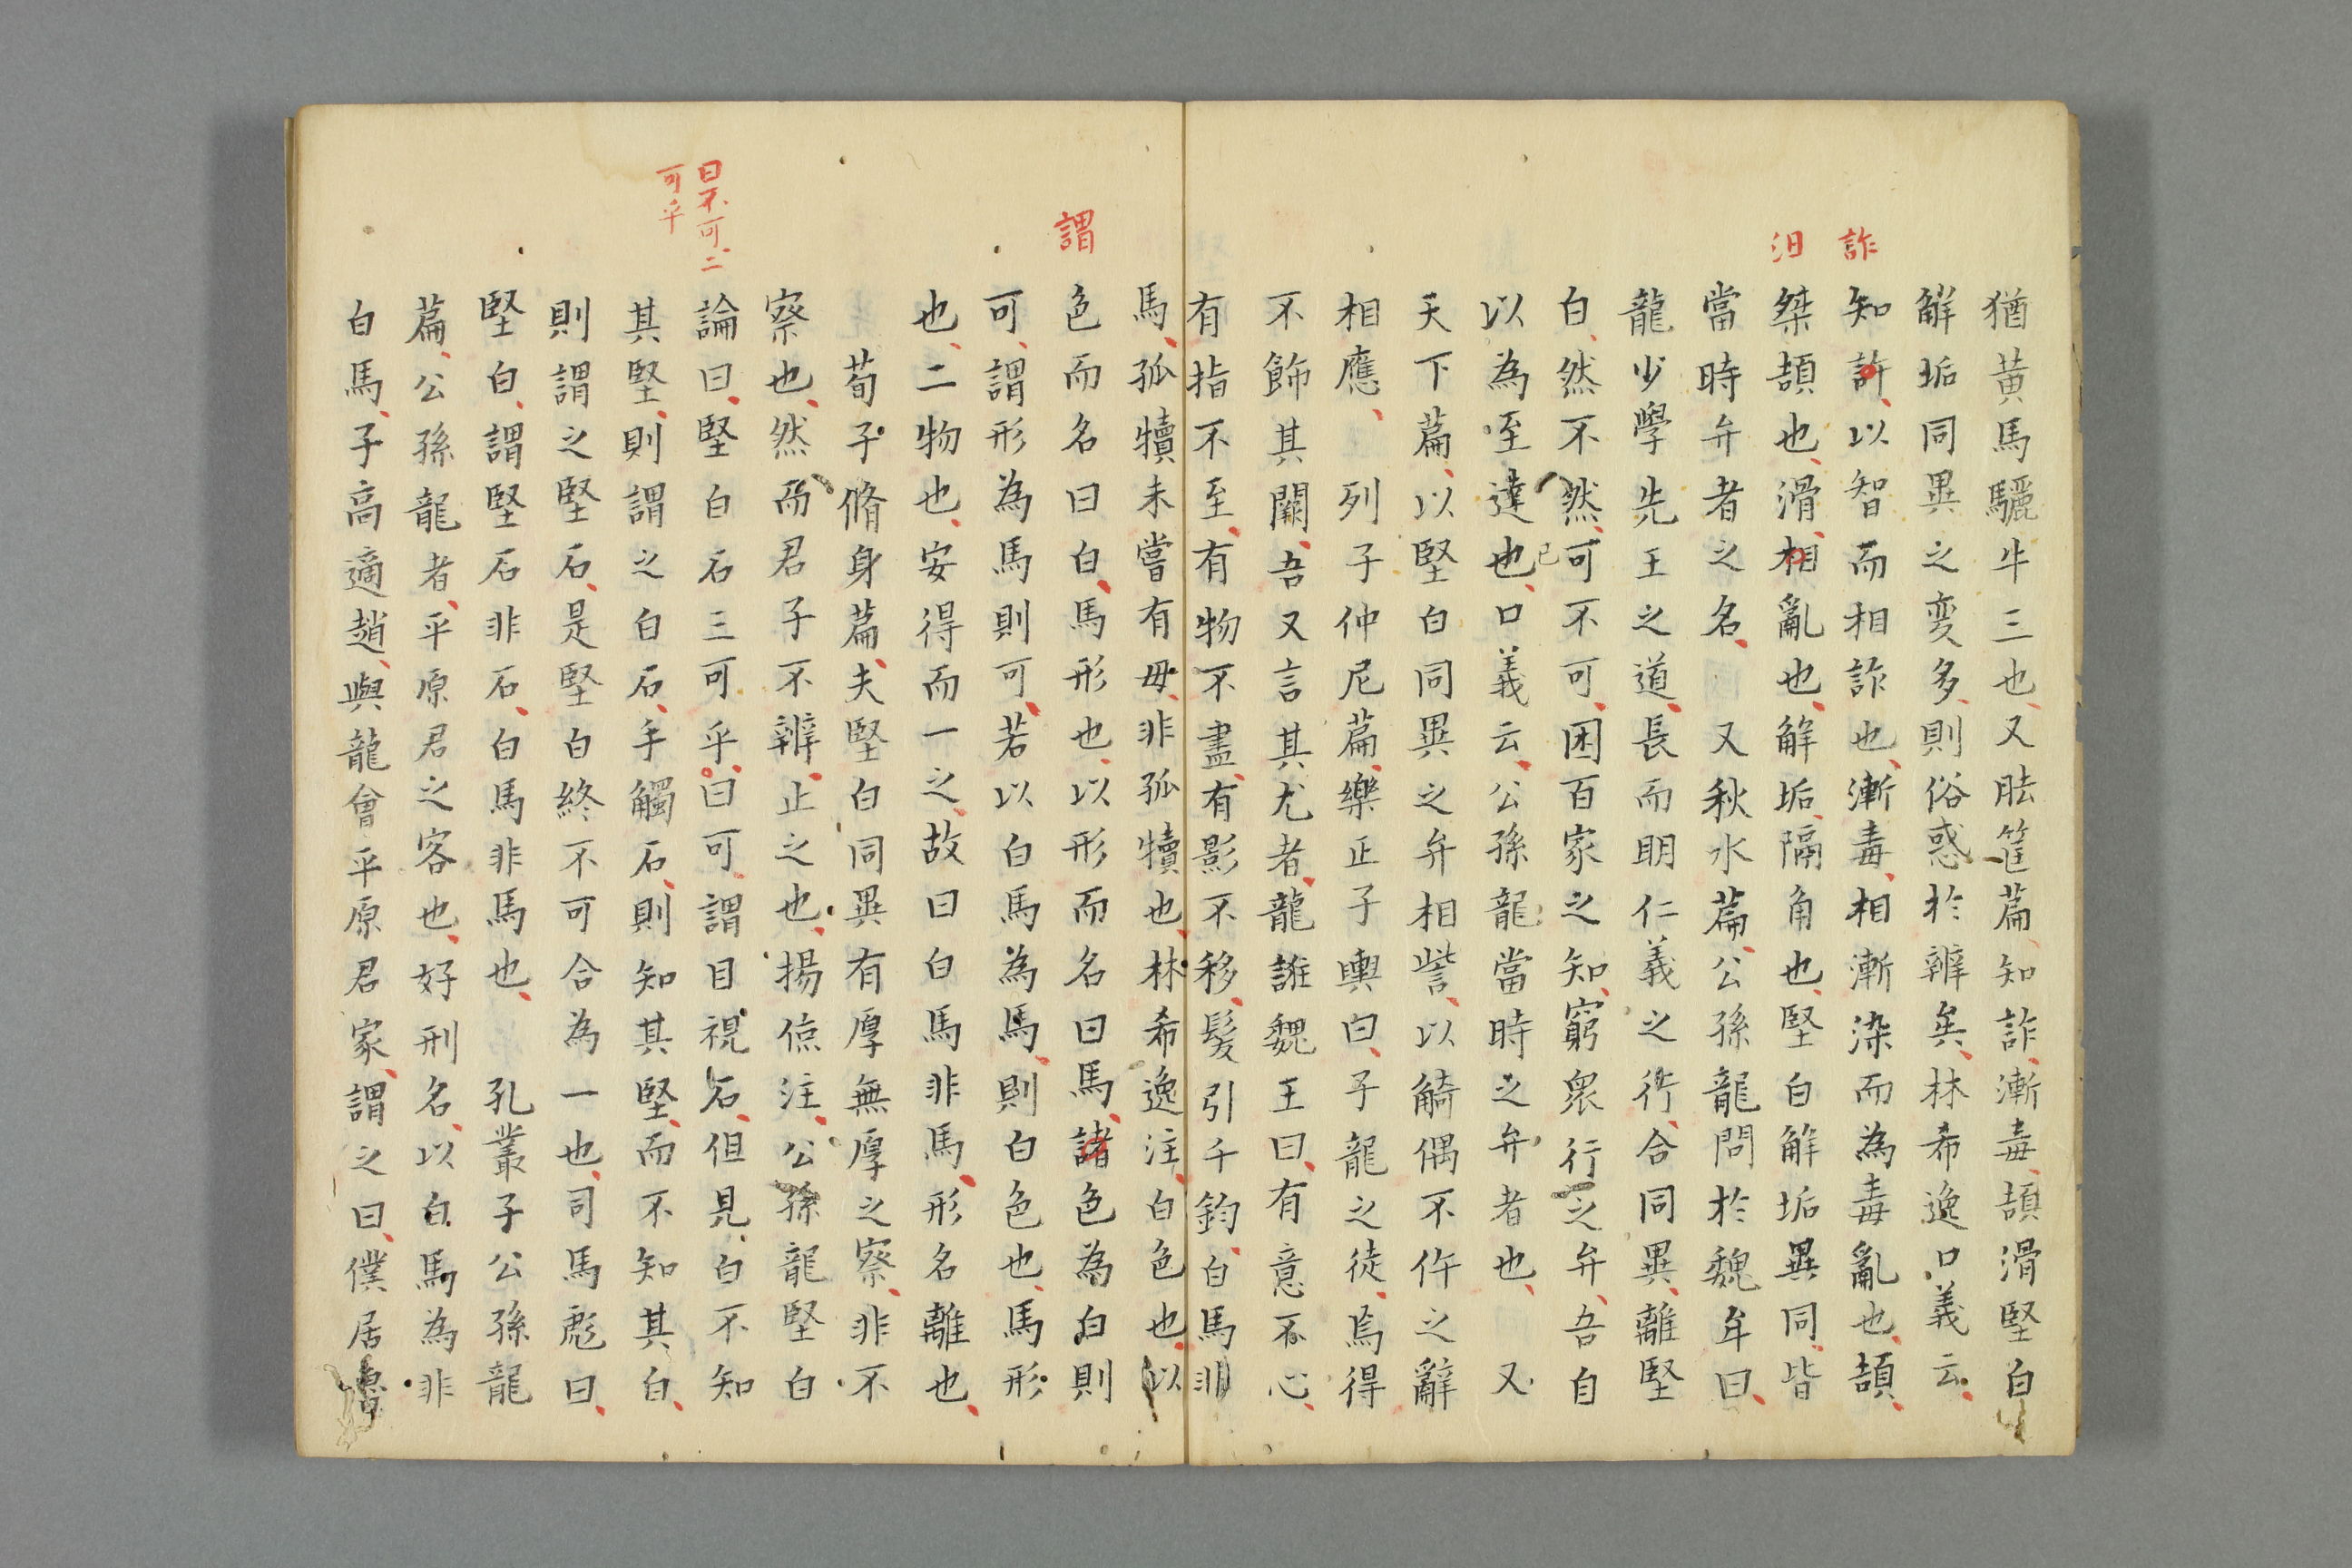 詐
汨
猶黄馬驪牛三也又胠篋篇知詐漸毒頡滑堅白
解垢同異之変多則俗惑於辨矣林希逸口義云
知詐以智而相詐也漸毒相漸染而為毒亂也頡
桀頡也滑相亂也解垢隔角也堅白解垢異同皆
當時弁者之名 又秋水篇公孫龍問於魏牟曰
龍少學先王之道長而明仁義之行合同異離堅
白然不然可不可困百家之知窮衆行之弁吾自
已
以為至達也口義云公孫龍當時之弁者也 又
天下篇以堅白同異之弁相訾以觭偶不仵之辭
相應 列子仲尼篇樂正子輿曰子龍之徒焉得
不飾其闕吾又言其尤者龍誑魏王曰有意不心
有指不至有物不盡有影不移髮引千鈞白馬非
謂
曰不可二
可乎
馬孤犢未嘗有母非孤犢也林希逸注白色也以
色而名曰白馬形也以形而名曰馬諸色為白則
可謂形為馬則可若以白馬為馬則白色也馬形
也二物也安得而一之故曰白馬非馬形名離也
荀子脩身篇夫堅白同異有厚無厚之察非不
察也然而君子不辨止之也揚倞注公孫龍堅白
論曰堅白石三可乎曰可謂目視石但見白不知
其堅則謂之白石手觸石則知其堅而不知其白
則謂之堅石是堅白終不可合為一也司馬彪曰
堅白謂堅石非石白馬非馬也 孔叢子公孫龍
篇公孫龍者平原君之客也好刑名以白馬為非
白馬子高適趙與龍會平原君家謂之曰僕居魯